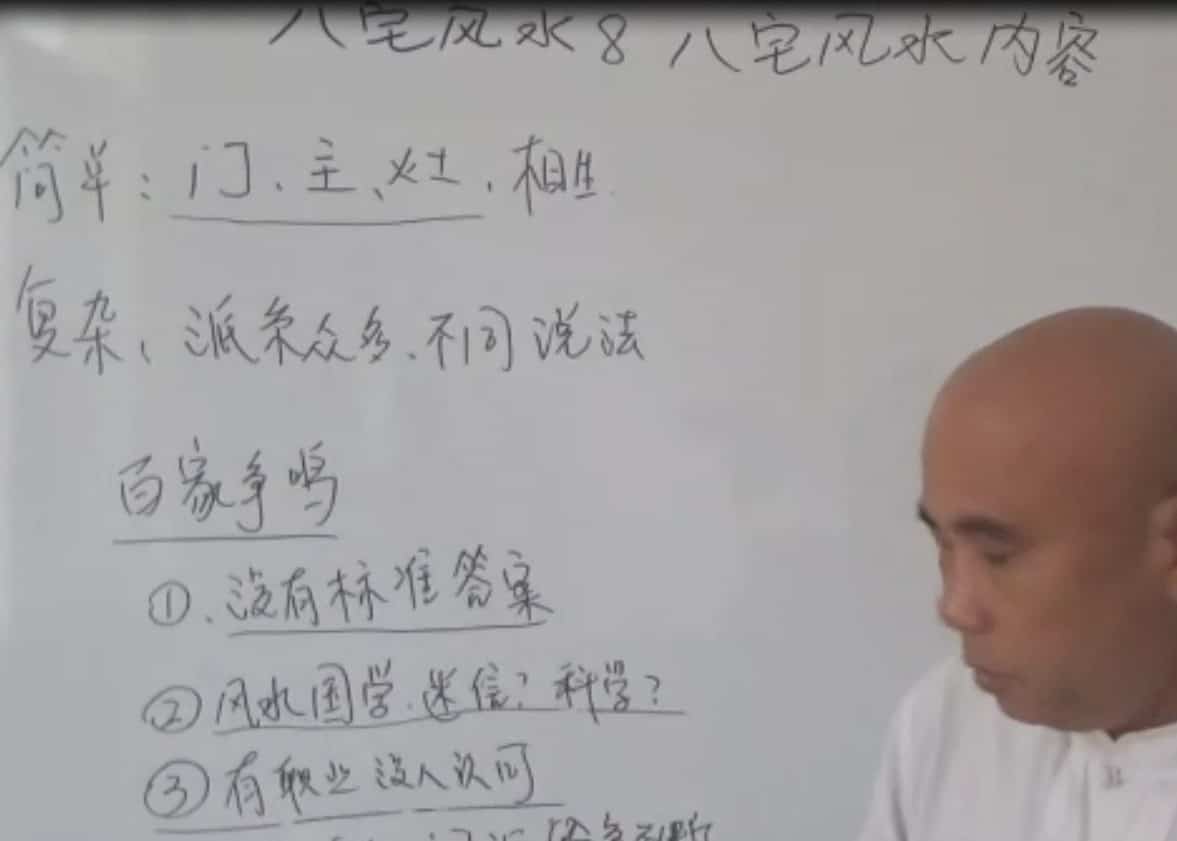 八宅风水8 八宅风水内容
简单：门、主、灶、相生
复杂、派系众多、不同说法
百家争鸣
①、没有标准答案
②风水国学、迷信？科学？
③有职业没人认可